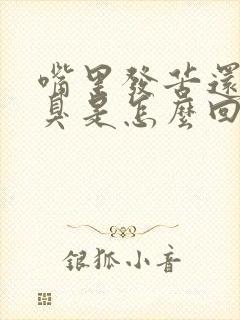 嘴里發苦還
臭是怎麼回
銀狐小音